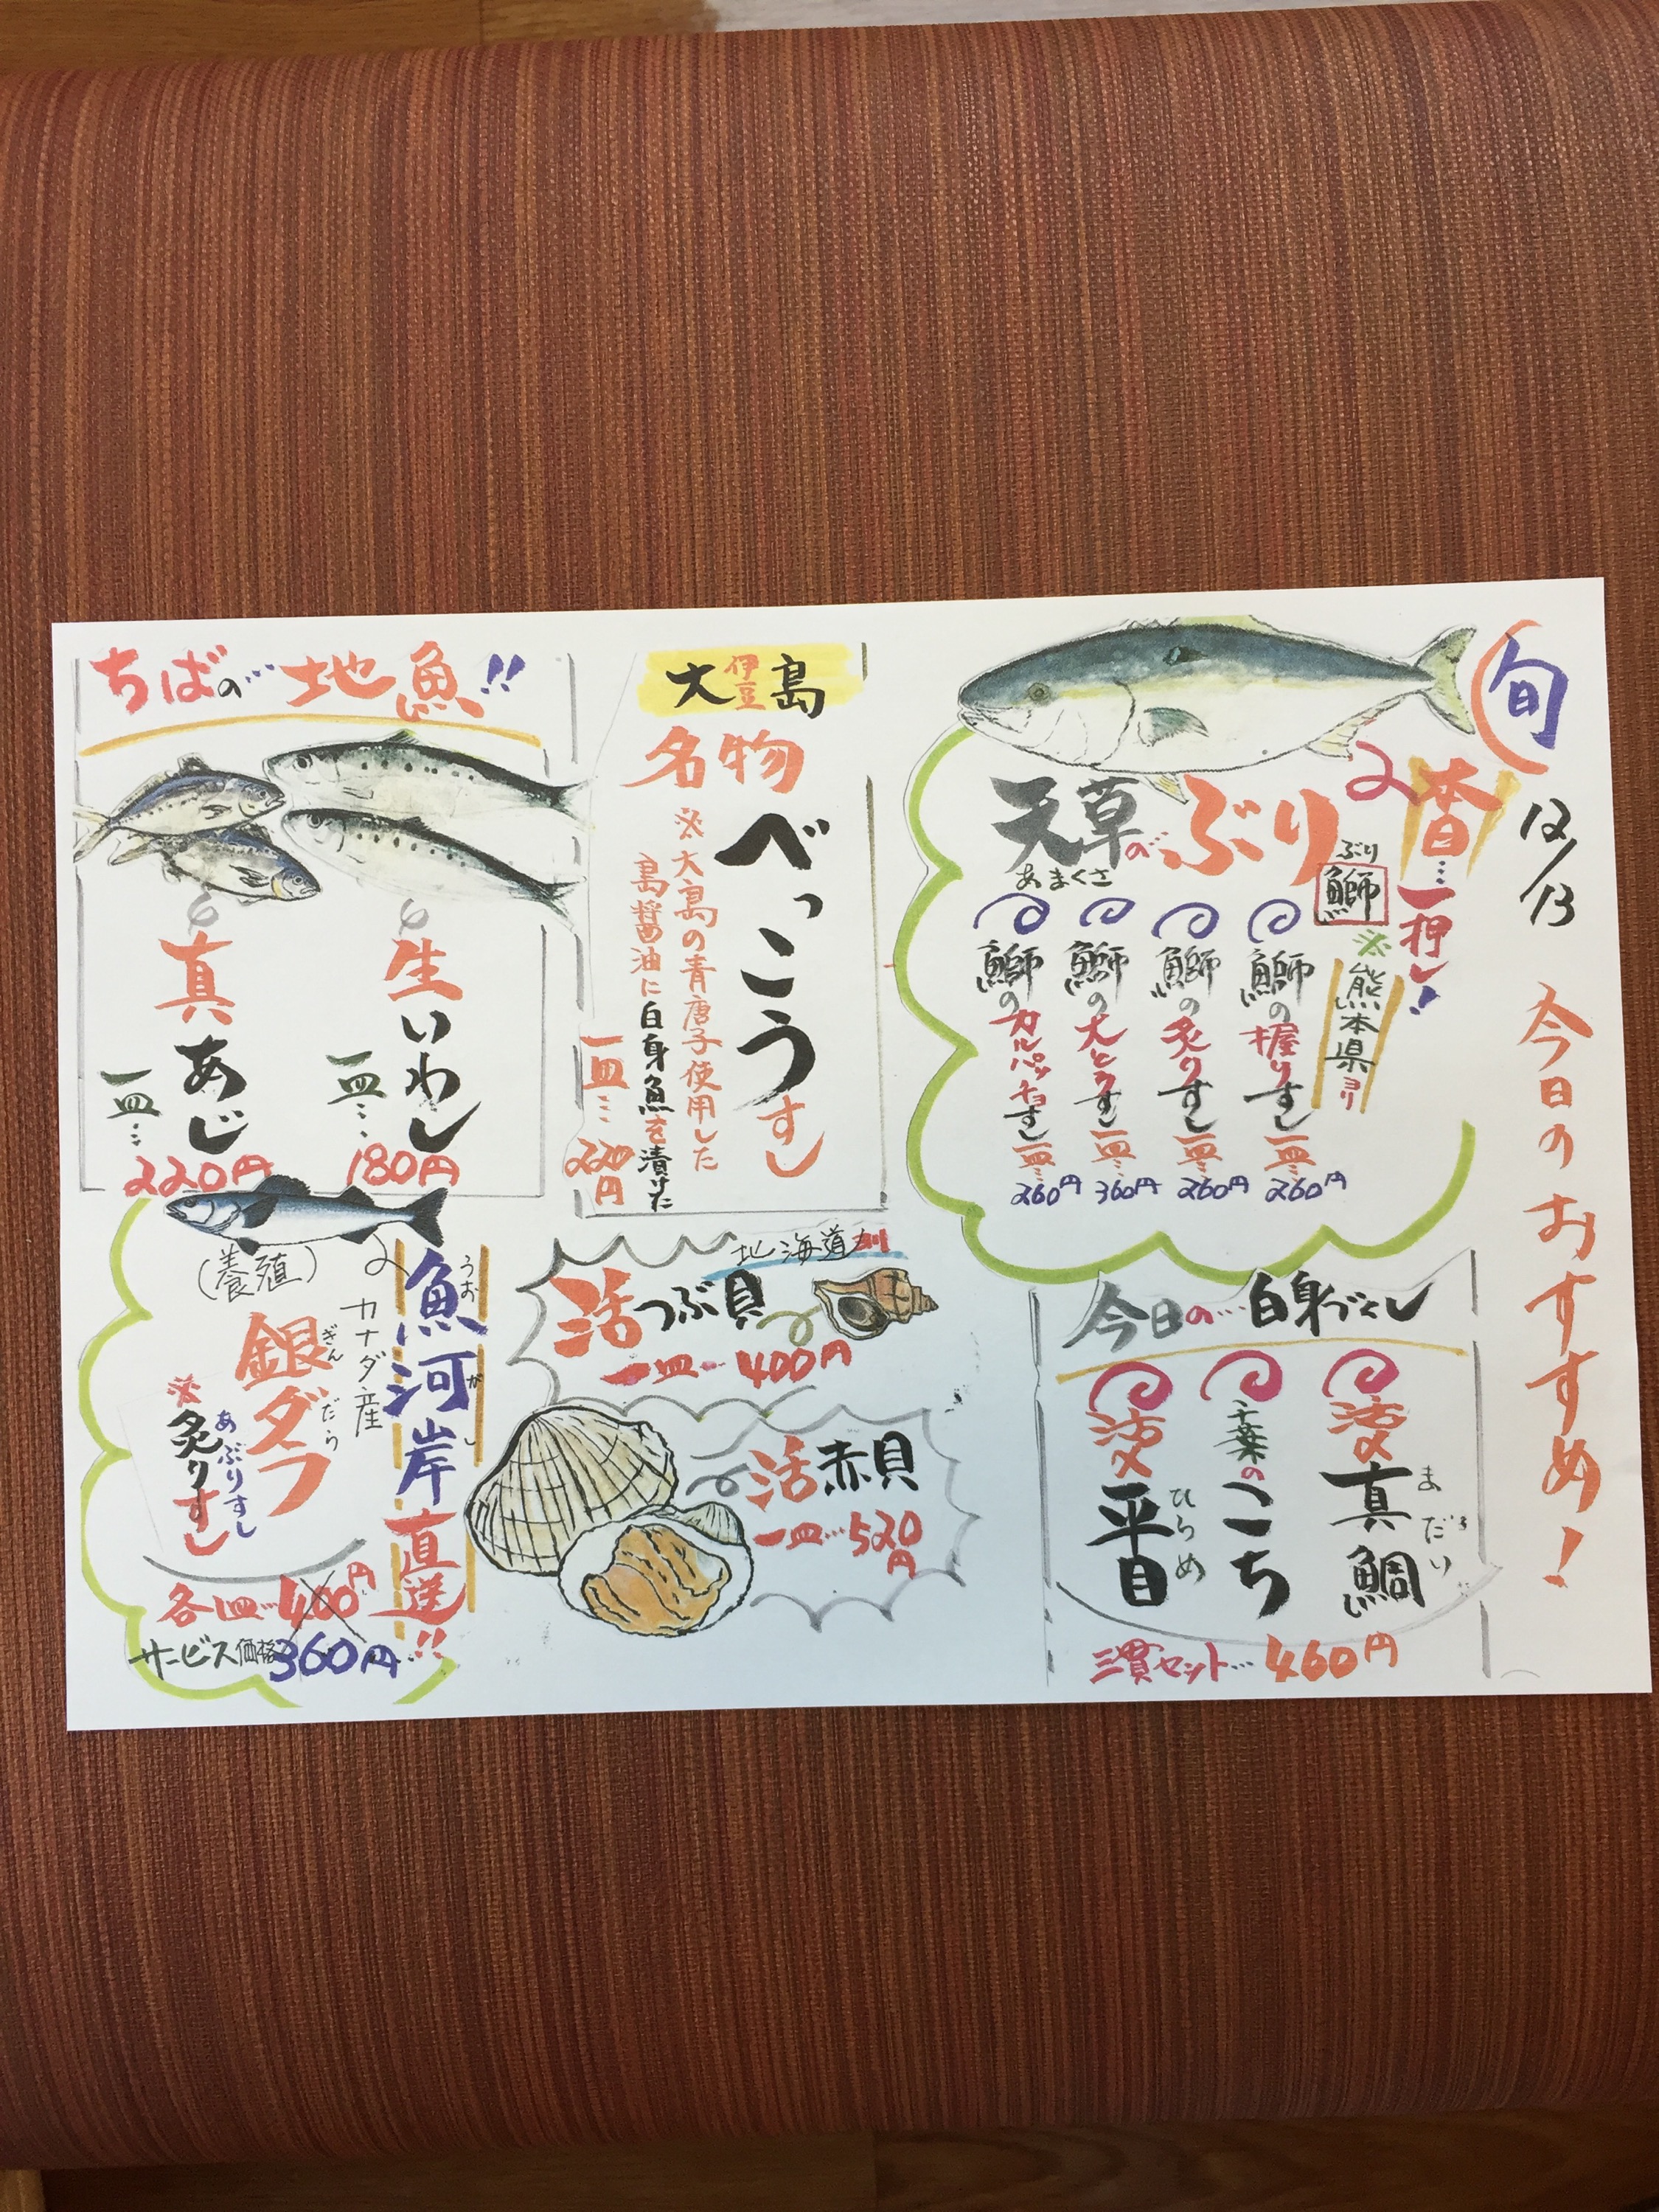 旬
12/13
今日のおすすめ!
本日…一押し!
天草のぶり
あまくさ
ぶり
鰤
※熊本県ヨリ
鰤の握りすし一皿…260円
鰤の炙りすし一皿…260円
鰤の大とろすし一皿…360円
鰤のカルパッチョすし一皿…260円
今日の…白身づくし
活〆真鯛
まだい
千葉のこち
活〆平目
ひらめ
三貫セット…460円
伊豆
大島
名物
べっこうすし
※大島の青唐子使用した
島醤油に白身魚を漬けた
一皿…220円
ちばの…地魚!!
生いわし
一皿…180円
真あじ
一皿…220円
活つぶ貝
一皿…400円
活赤貝
一皿…520円
魚河岸直送!!
うおがし
カナダ産
(養殖)
銀ダラ
ぎんだら
※炙りすし
あぶりすし
各皿…400円
サービス価格360円